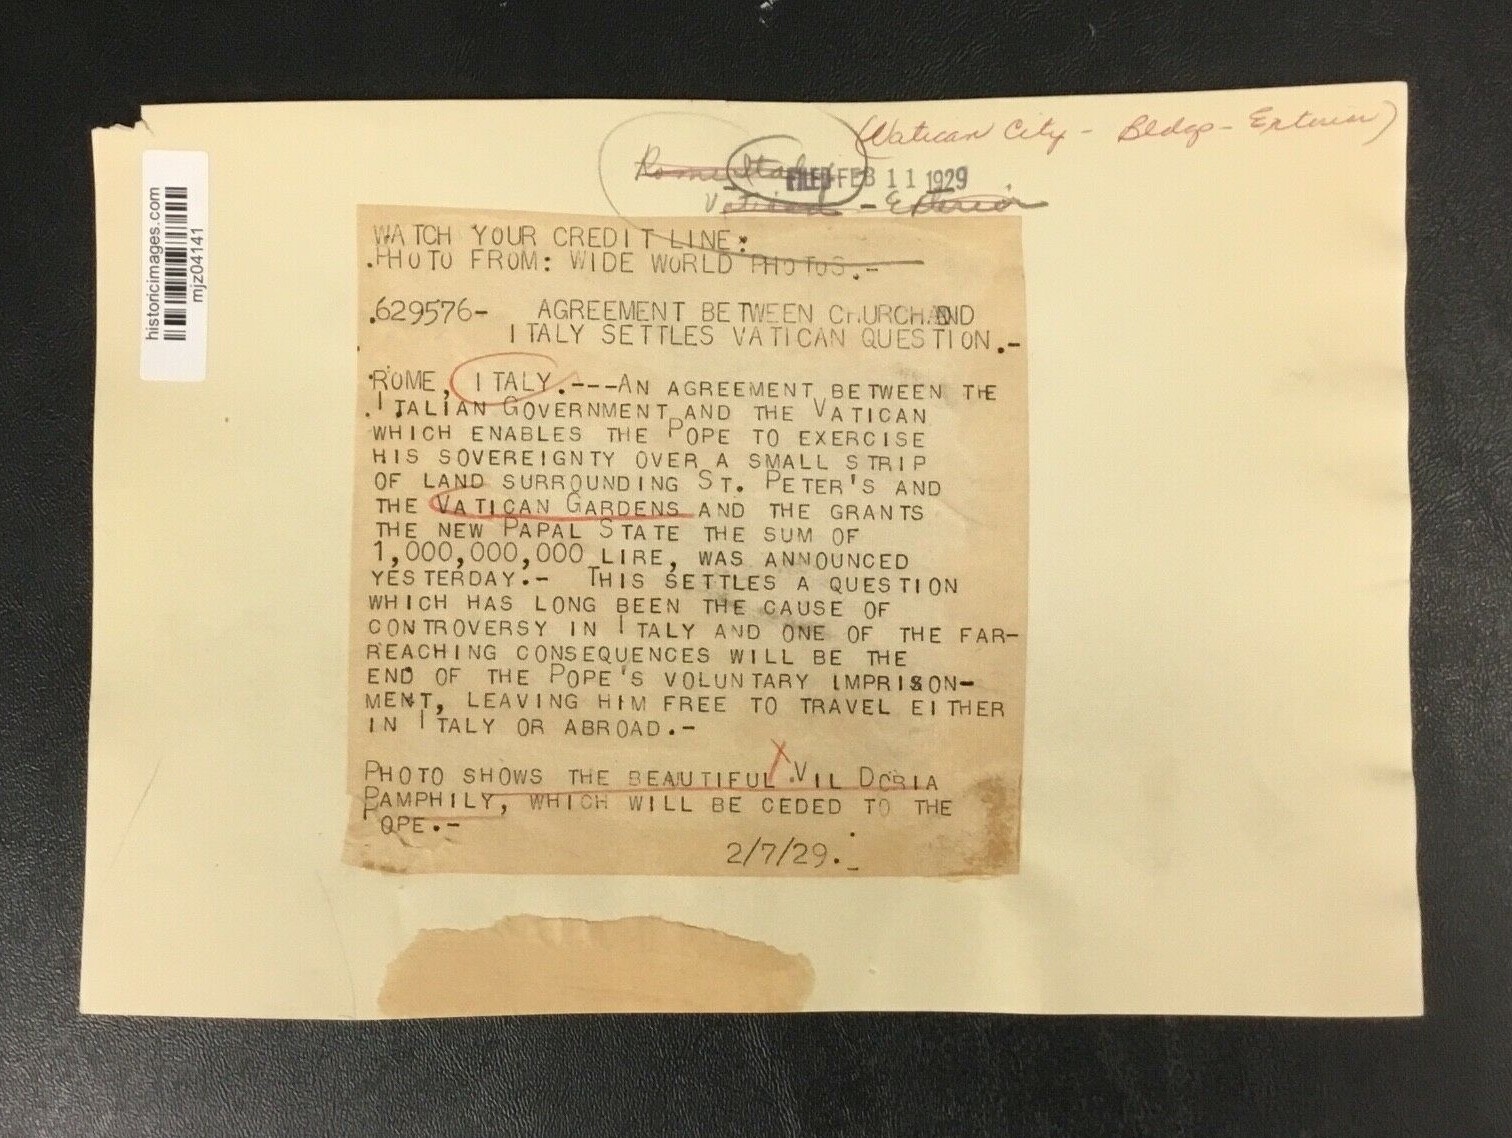 (Vatican City - Bldgs - Exterior)
Rome Italy
FILED FEB 11 1929
Vatican - Exterior
historicimages.com
mjz04141
WATCH YOUR CREDIT LINE:
.PHOTO FROM: WIDE WORLD PHOTOS.-
.629576- AGREEMENT BETWEEN CHURCH AND
ITALY SETTLES VATICAN QUESTION.-
ROME, ITALY.---AN AGREEMENT BETWEEN THE
.ITALIAN GOVERNMENT AND THE VATICAN
WHICH ENABLES THE POPE TO EXERCISE
HIS SOVEREIGNTY OVER A SMALL STRIP
OF LAND SURROUNDING ST. PETER'S AND
THE VATICAN GARDENS AND THE GRANTS
THE NEW PAPAL STATE THE SUM OF
1,000,000,000 LIRE, WAS ANNOUNCED
YESTERDAY.- THIS SETTLES A QUESTION
WHICH HAS LONG BEEN THE CAUSE OF
CONTROVERSY IN ITALY AND ONE OF THE FAR-
REACHING CONSEQUENCES WILL BE THE
END OF THE POPE'S VOLUNTARY IMPRISON-
MENT, LEAVING HIM FREE TO TRAVEL EITHER
IN ITALY OR ABROAD.-
PHOTO SHOWS THE BEAUTIFUL X .VIL DORIA
PAMPHILY, WHICH WILL BE CEDED TO THE
POPE.-
2/7/29.-